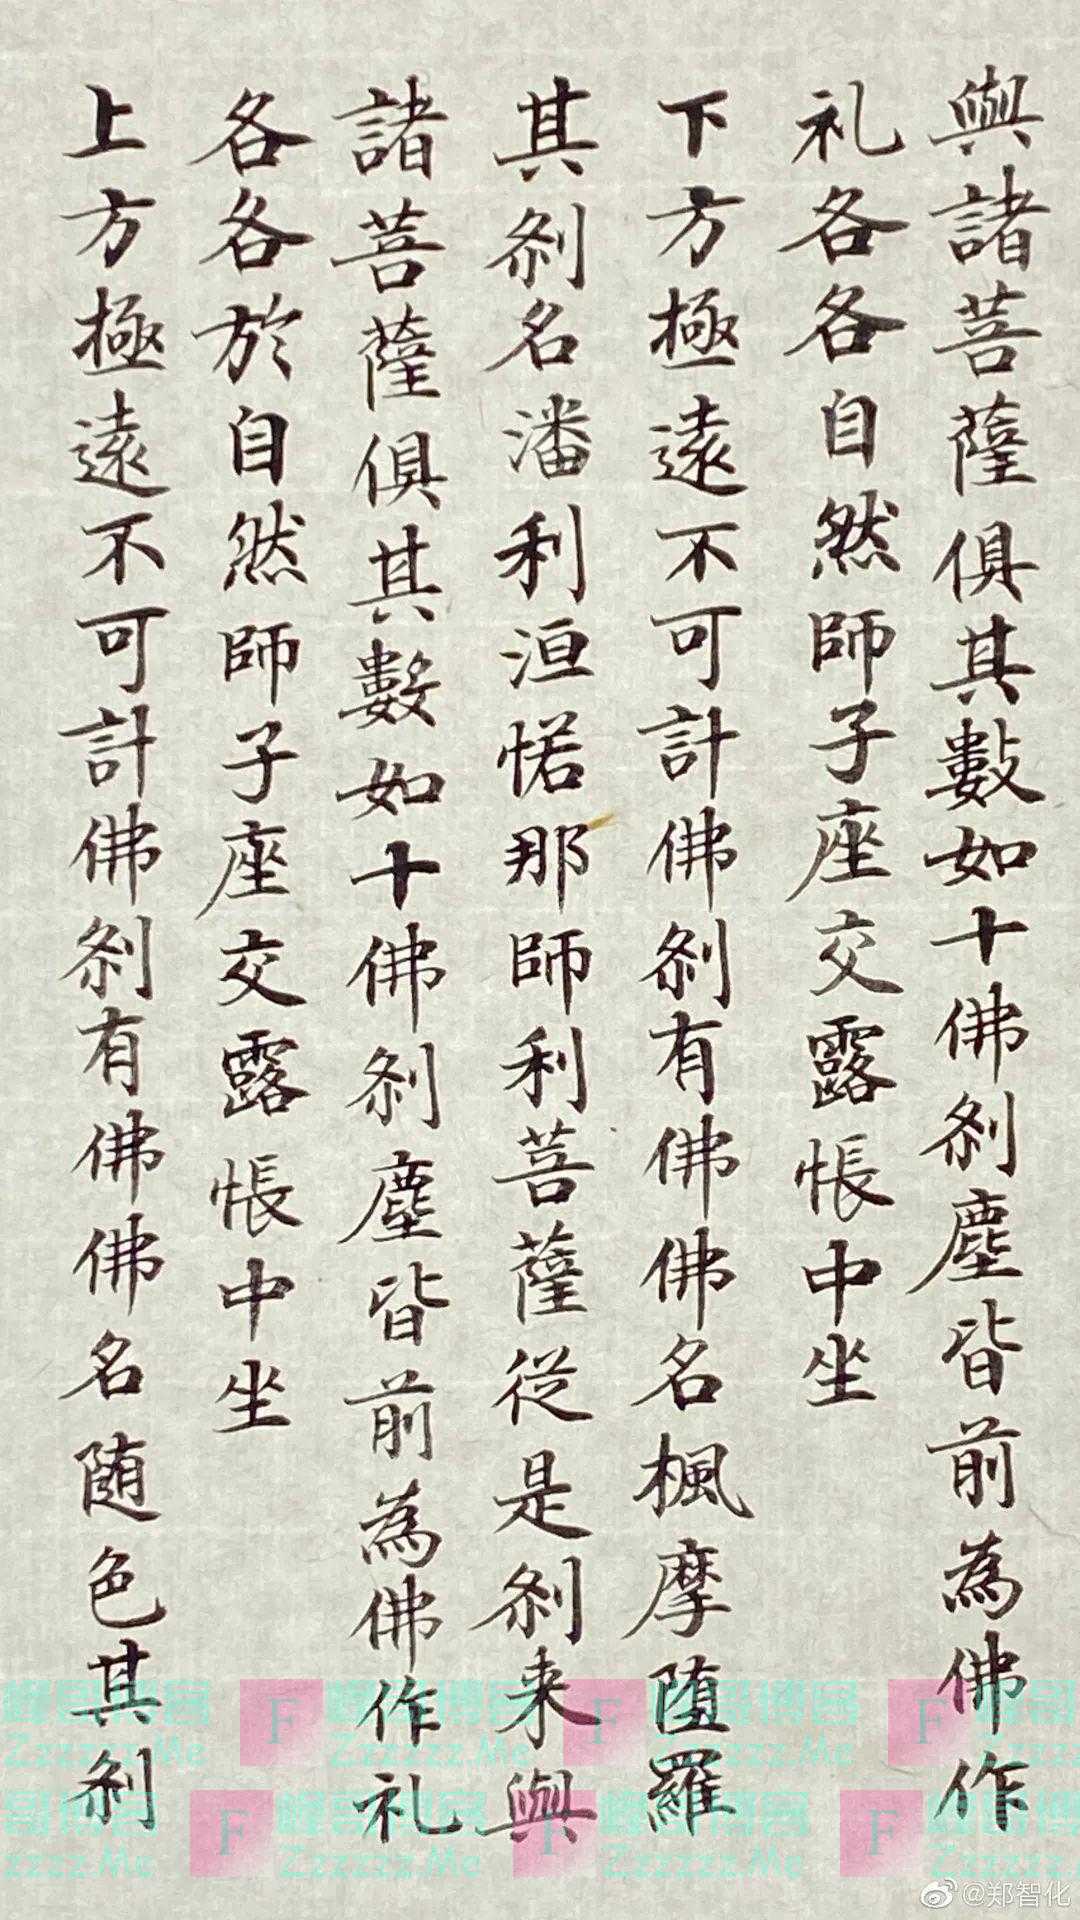 與諸菩薩俱其數如十佛剎塵皆前為佛作
礼各各自然師子座交露帳中坐
下方極遠不可計佛剎有佛佛名楓摩堕羅
其剎名潘利洹惱那師利菩薩從是剎来與
諸菩薩俱其數如十佛剎塵皆前為佛作礼
各各於自然師子座交露帳中坐
上方極遠不可計佛剎有佛佛名随色其剎
F
Zzzzzz.Me
@郑智化